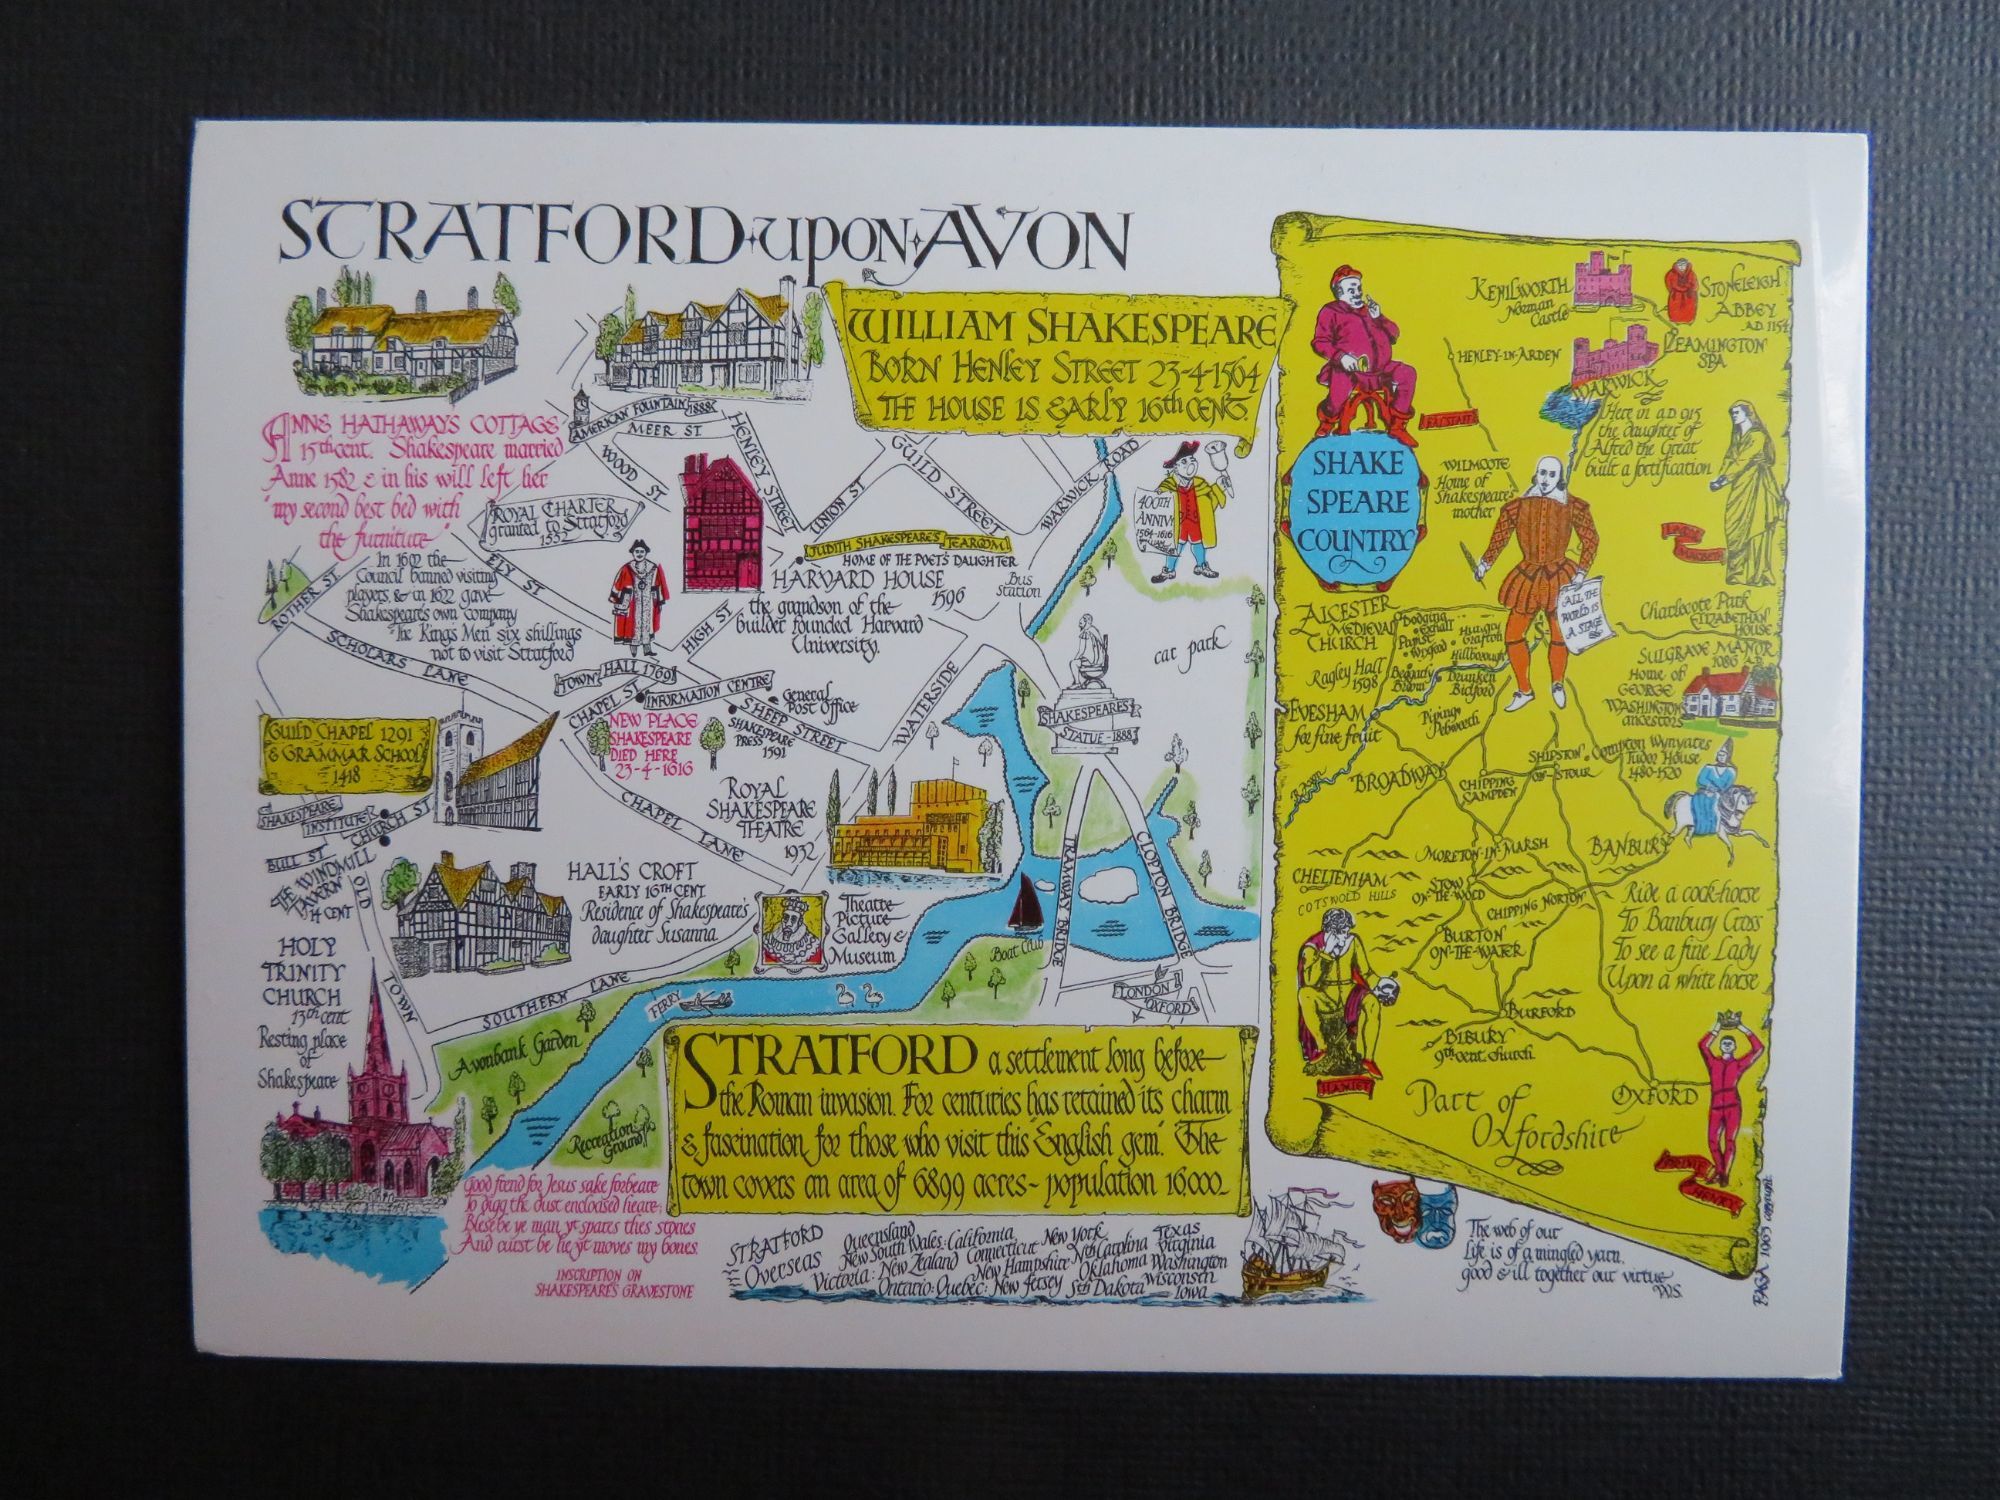 STRATFORD·upon·AVON
WILLIAM SHAKESPEARE
BORN HENLEY STREET 23-4-1564
THE HOUSE IS EARLY 16th CENT
ANNE HATHAWAY'S COTTAGE
15th cent. Shakespeare married
Anne 1582 & in his will left her
"my second best bed with
the furniture"
AMERICAN FOUNTAIN 1888
MEER ST.
WOOD ST
HENLEY STREET
UNION ST
GUILD STREET
WARWICK ROAD
400TH
ANNIV.
1564-1616
ROYAL CHARTER
granted to Stratford
1553
In 1602 the
Council banned visiting
players, & in 1622 gave
Shakespeare's own company
The King's Men six shillings
not to visit Stratford
ROTHER ST.
ELY ST
SCHOLARS LANE
JUDITH SHAKESPEARE'S TEAROOM
HOME OF THE POET'S DAUGHTER
HARVARD HOUSE
1596
the grandson of the
builder founded Harvard
University.
Bus
Station
HIGH ST
TOWN HALL 1769
CHAPEL ST
INFORMATION CENTRE
General
Post Office
SHEEP STREET
SHAKESPEARE
PRESS 1591
NEW PLACE
SHAKESPEARE
DIED HERE
23-4-1616
WATERSIDE
car park
SHAKESPEARE'S
STATUE-1888
GUILD CHAPEL 1291
& GRAMMAR SCHOOL
1418
SHAKESPEARE
INSTITUTE
CHURCH ST
BULL ST
THE WINDMILL
TAVERN
14 CENT
OLD TOWN
CHAPEL LANE
ROYAL
SHAKESPEARE
THEATRE
1932
HALL'S CROFT
EARLY 16TH CENT.
Residence of Shakespeare's
daughter Susanna
Theatre
Picture
Gallery &
Museum
Boat Club
TRAMWAY BRIDGE
CLOPTON BRIDGE
LONDON
OXFORD
HOLY
TRINITY
CHURCH
13th cent
Resting place
of
Shakespeare
SOUTHERN LANE
FERRY
Avonbank Garden
Recreation
Ground
STRATFORD a settlement long before
the Roman invasion. For centuries has retained its charm
& fascination for those who visit this "English gem." The
town covers an area of 6899 acres - population 16,000.
Good frend for Jesus sake forbeare
To digg the dust encloased heare:
Blese be ye man yt spares thes stones
And curst be he yt moves my bones
INSCRIPTION ON
SHAKESPEARE'S GRAVESTONE
STRATFORD
Overseas
Queensland
New South Wales: California
Victoria: New Zealand
Ontario: Quebec: New Jersey
Connecticut New York
New Hampshire Nth Carolina
Oklahoma
Sth Dakota
Texas
Virginia
Washington
Wisconsin
Iowa
SHAKE
SPEARE
COUNTRY
FALSTAFF
KENILWORTH
Norman
Castle
STONELEIGH
ABBEY
A.D. 1154
HENLEY-IN-ARDEN
LEAMINGTON
SPA
WARWICK
Here in a.d. 915
the daughter of
Alfred the Great
built a fortification
WILMCOTE
Home of
Shakespeare's
mother
LADY
MACBETH
ALL THE
WORLD IS
A STAGE
ALCESTER
MEDIEVAL
CHURCH
Ragley Hall
1598
Dodging
Exhall
Papist
Wixford
Beggarly
Broom
Hungry
Grafton
Hillborough
Drunken
Bidford
Piping
Pebworth
Charlecote Park
ELIZABETHAN
HOUSE
SULGRAVE MANOR
1086 A.D.
Home of
GEORGE
WASHINGTON'S
ancestors
EVESHAM
for fine fruit
R. Avon
BROADWAY
CHIPPING
CAMPDEN
SHIPSTON
ON-STOUR
Compton Wynyates
Tudor House
1480-1520
MORETON-IN-MARSH
BANBURY
CHELTENHAM
COTSWOLD HILLS
STOW
ON-THE-WOLD
CHIPPING NORTON
BURTON
ON-THE-WATER
Ride a cock-horse
To Banbury Cross
To see a fine Lady
Upon a white horse
BURFORD
BIBURY
9th cent. church
HAMLET
OXFORD
Part of
Oxfordshire
PRINCE
HENRY
The web of our
Life is of a mingled yarn,
good & ill together our virtue
W.S.
PAGA 1963 copyright